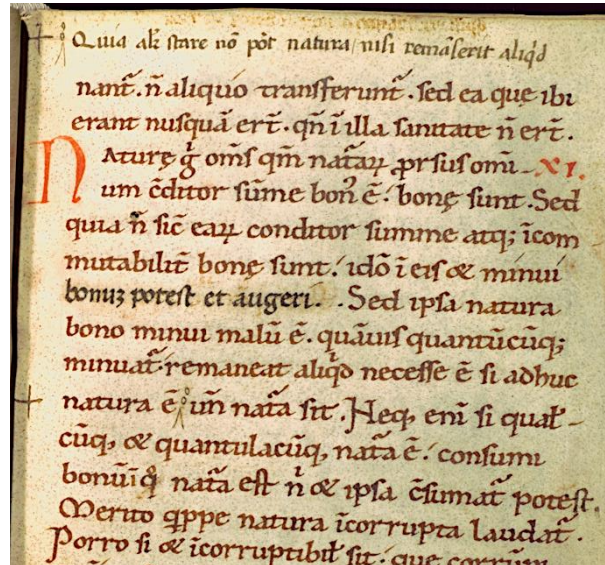 Quia alr̃ stare nõ põt natura / nisi remãserit aliq̃d
nant̃. n̄ aliquo transferunt̃. sed ea quę ibi
erant nusquã ert̃. qñ ĩ illa sanitate n̄ ert̃.
Naturę g̊ om̃s qm̃ natãꝝ prorsus omi- XI.
um c̃ditor sũme bonꝰ ẽ. bonę sunt. Sed
quia n̄ sic̃ eaꝝ conditor summe atq; ĩcom
mutabilit̃ bonę sunt. idõ ĩ eis & minui
bonuz potest et augeri. . Sed ipsa natura
bono minui malũ ẽ. quãuis quantũcũq;
minuat̃. remaneat aliq̃d necesse ẽ si adhuc
natura ẽ, uñ nat̃a sit. Neq, eni si qual̃-
cũq, & quantulacũq, nat̃a ẽ. consumi
bonũ ĩq̊ nat̃a est n̄ & ipsa c̃sumat̃ potest.
Merito q̃ppe natura ĩcorrupta laudat̃.
Porro si & ĩcorruptibil̃ sit. quę corrũm